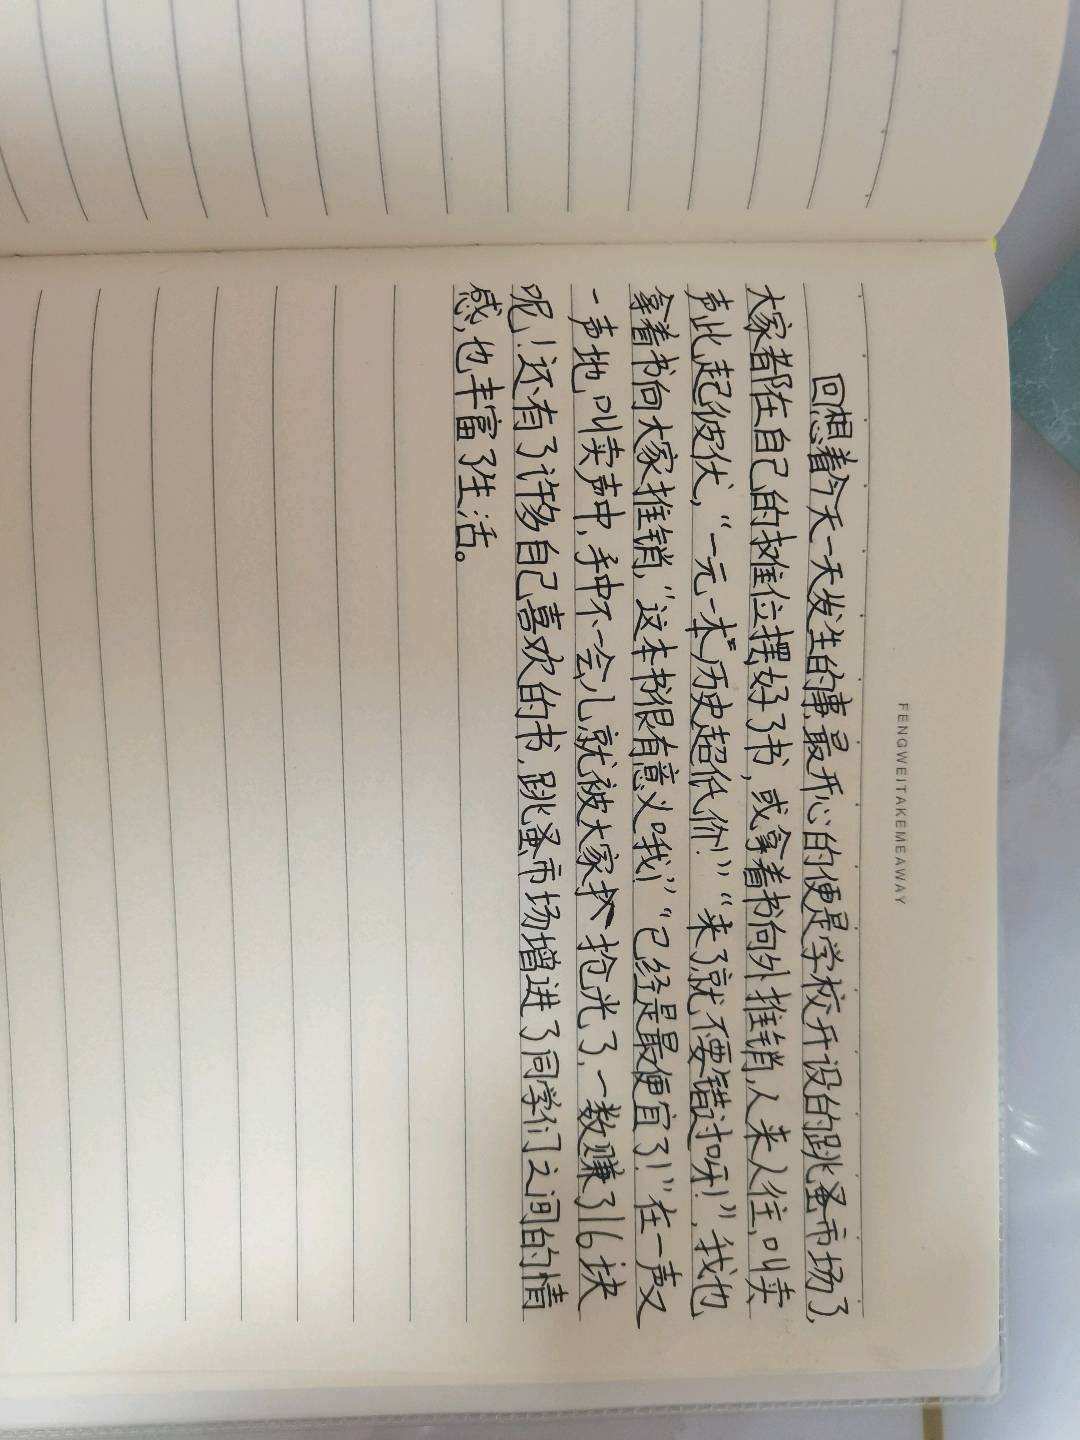 FENGWEITAKEMEAWAY
回想着今天一天发生的事,最开心的便是学校开设的跳蚤市场了,
大家都在自己的摊位摆好了书,或拿着书向外推销,人来人往,叫卖
声此起彼伏,“一元一本”“历史超低价!”“来了就不要错过呀!”,我也
拿着书向大家推销,“这本书很有意义哦!”“已经是最便宜了!”在一声又
一声地叫卖声中,手中不一会儿就被大家抢光了,一数赚了16块
呢!还有了许多自己喜欢的书,跳蚤市场增进了同学们之间的情
感,也丰富了生活。